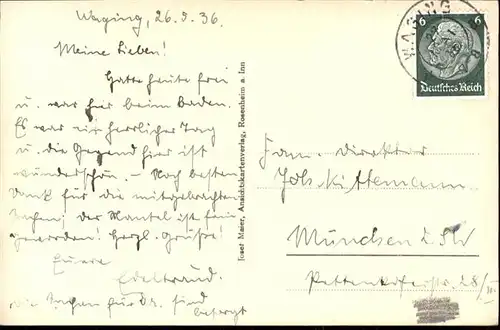 Waging, 26.5.36.
Meine Lieben!
Hatte heute frei
u. war hier beim Baden.
Es war ein herrlicher Tag
u. die Gegend hier ist
wunderschön. – Noch besten
Dank für die mitgebrachten
Sachen; der Mantel ist fein
geworden! Herzl. Grüße!
Euere
Edeltraud.
die Sachen für Dr. sind
besorgt
Josef Maier, Ansichtskartenverlag, Rosenheim a. Inn
WAGING
6 6
Deutsches Reich
Fam. Direktor
Joh. Kittemann
München 2 SW
Pettenkoferstr. 28/III